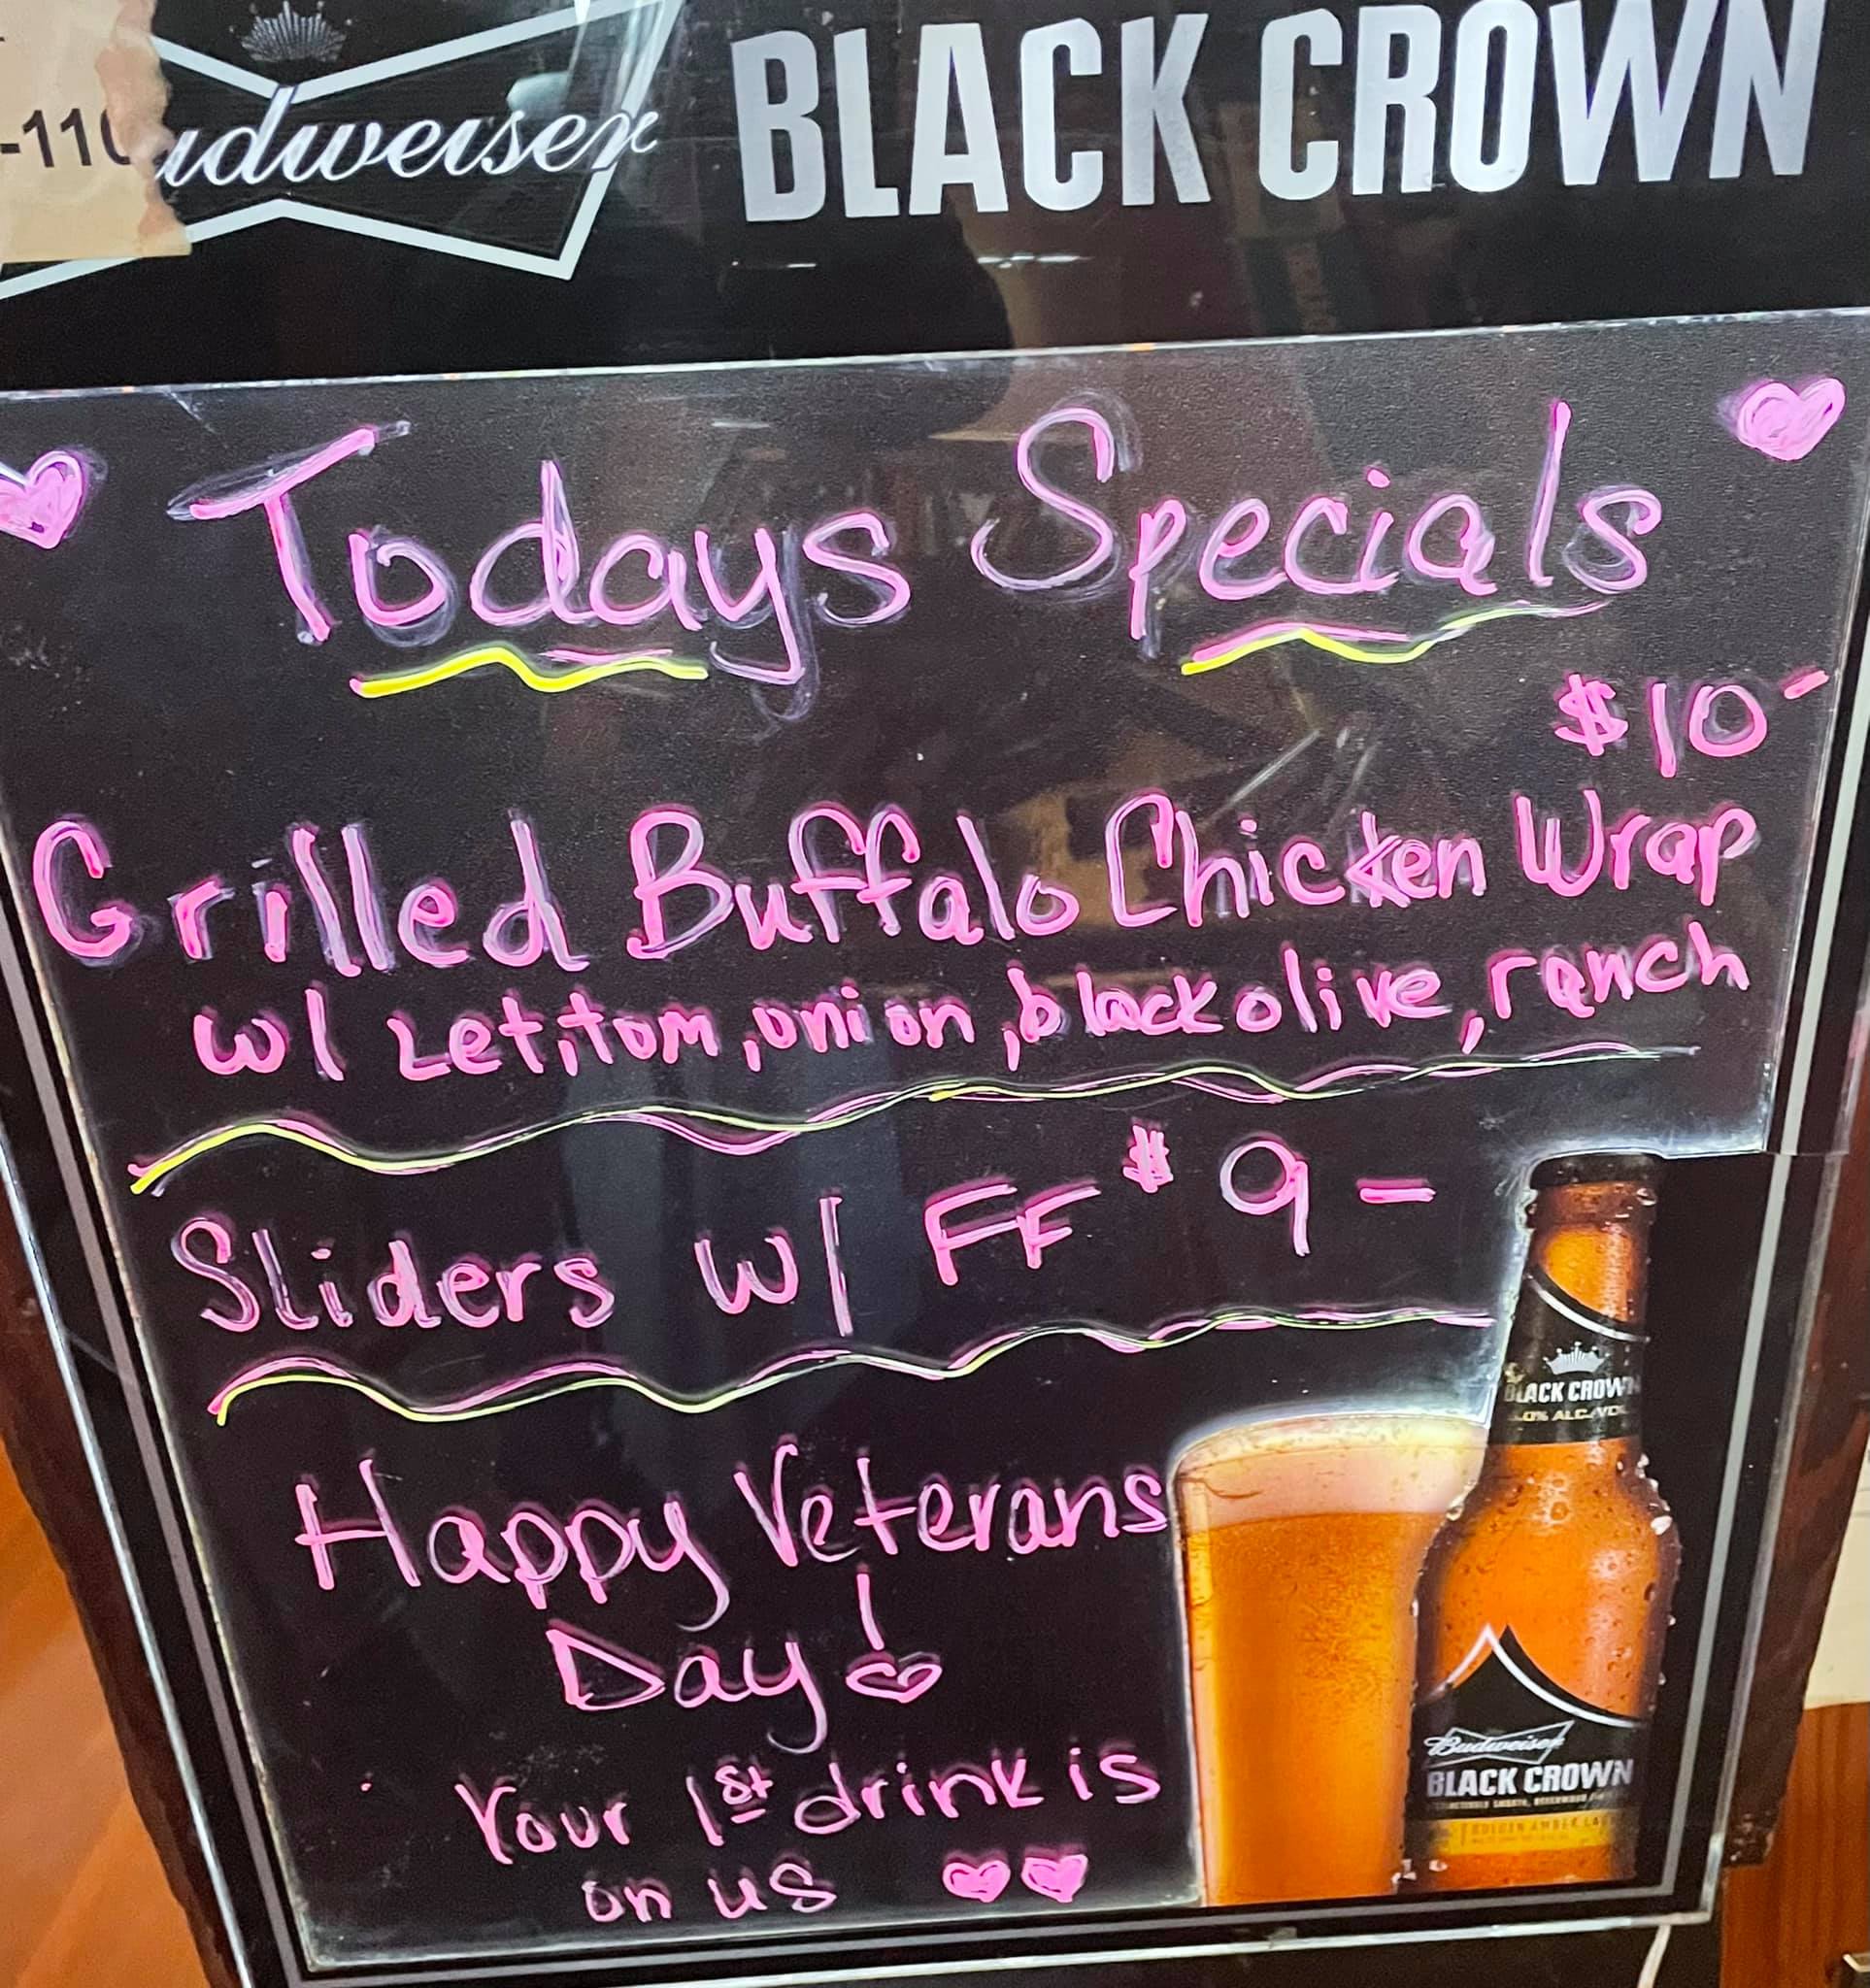 -110
Budweiser
BLACK CROWN
Todays Specials
$10-
Grilled Buffalo Chicken Wrap
w/ Let, tom, onion, black olive, ranch
Sliders w/ FF $9-
Happy Veterans
Day!
Your 1st drink is
on us
BLACK CROWN
Budweiser
BLACK CROWN
GOLDEN AMBER LAGER